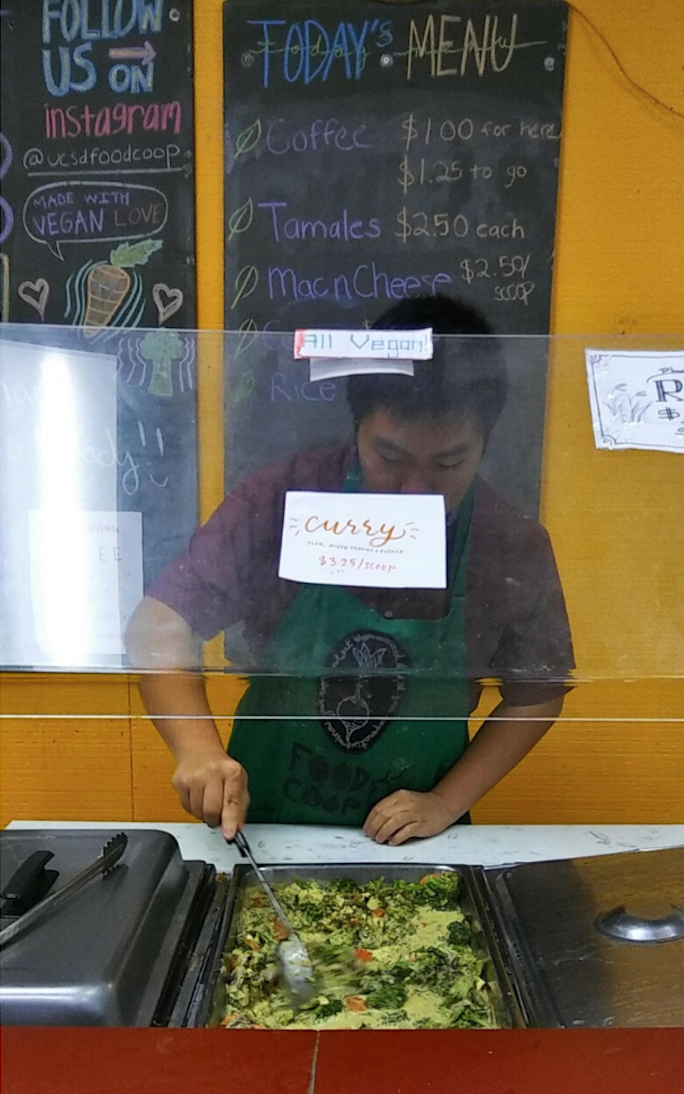 FOLLOW
US ON
instagram
@ucsdfoodcoop
MADE WITH
VEGAN LOVE
TODAY's MENU
Coffee $1.00 for here
$1.25 to go
Tamales $2.50 each
Mac n Cheese $2.50/
scoop
Rice
All Vegan!
curry
$3.25/scoop
R
$
FOOD
CO-OP